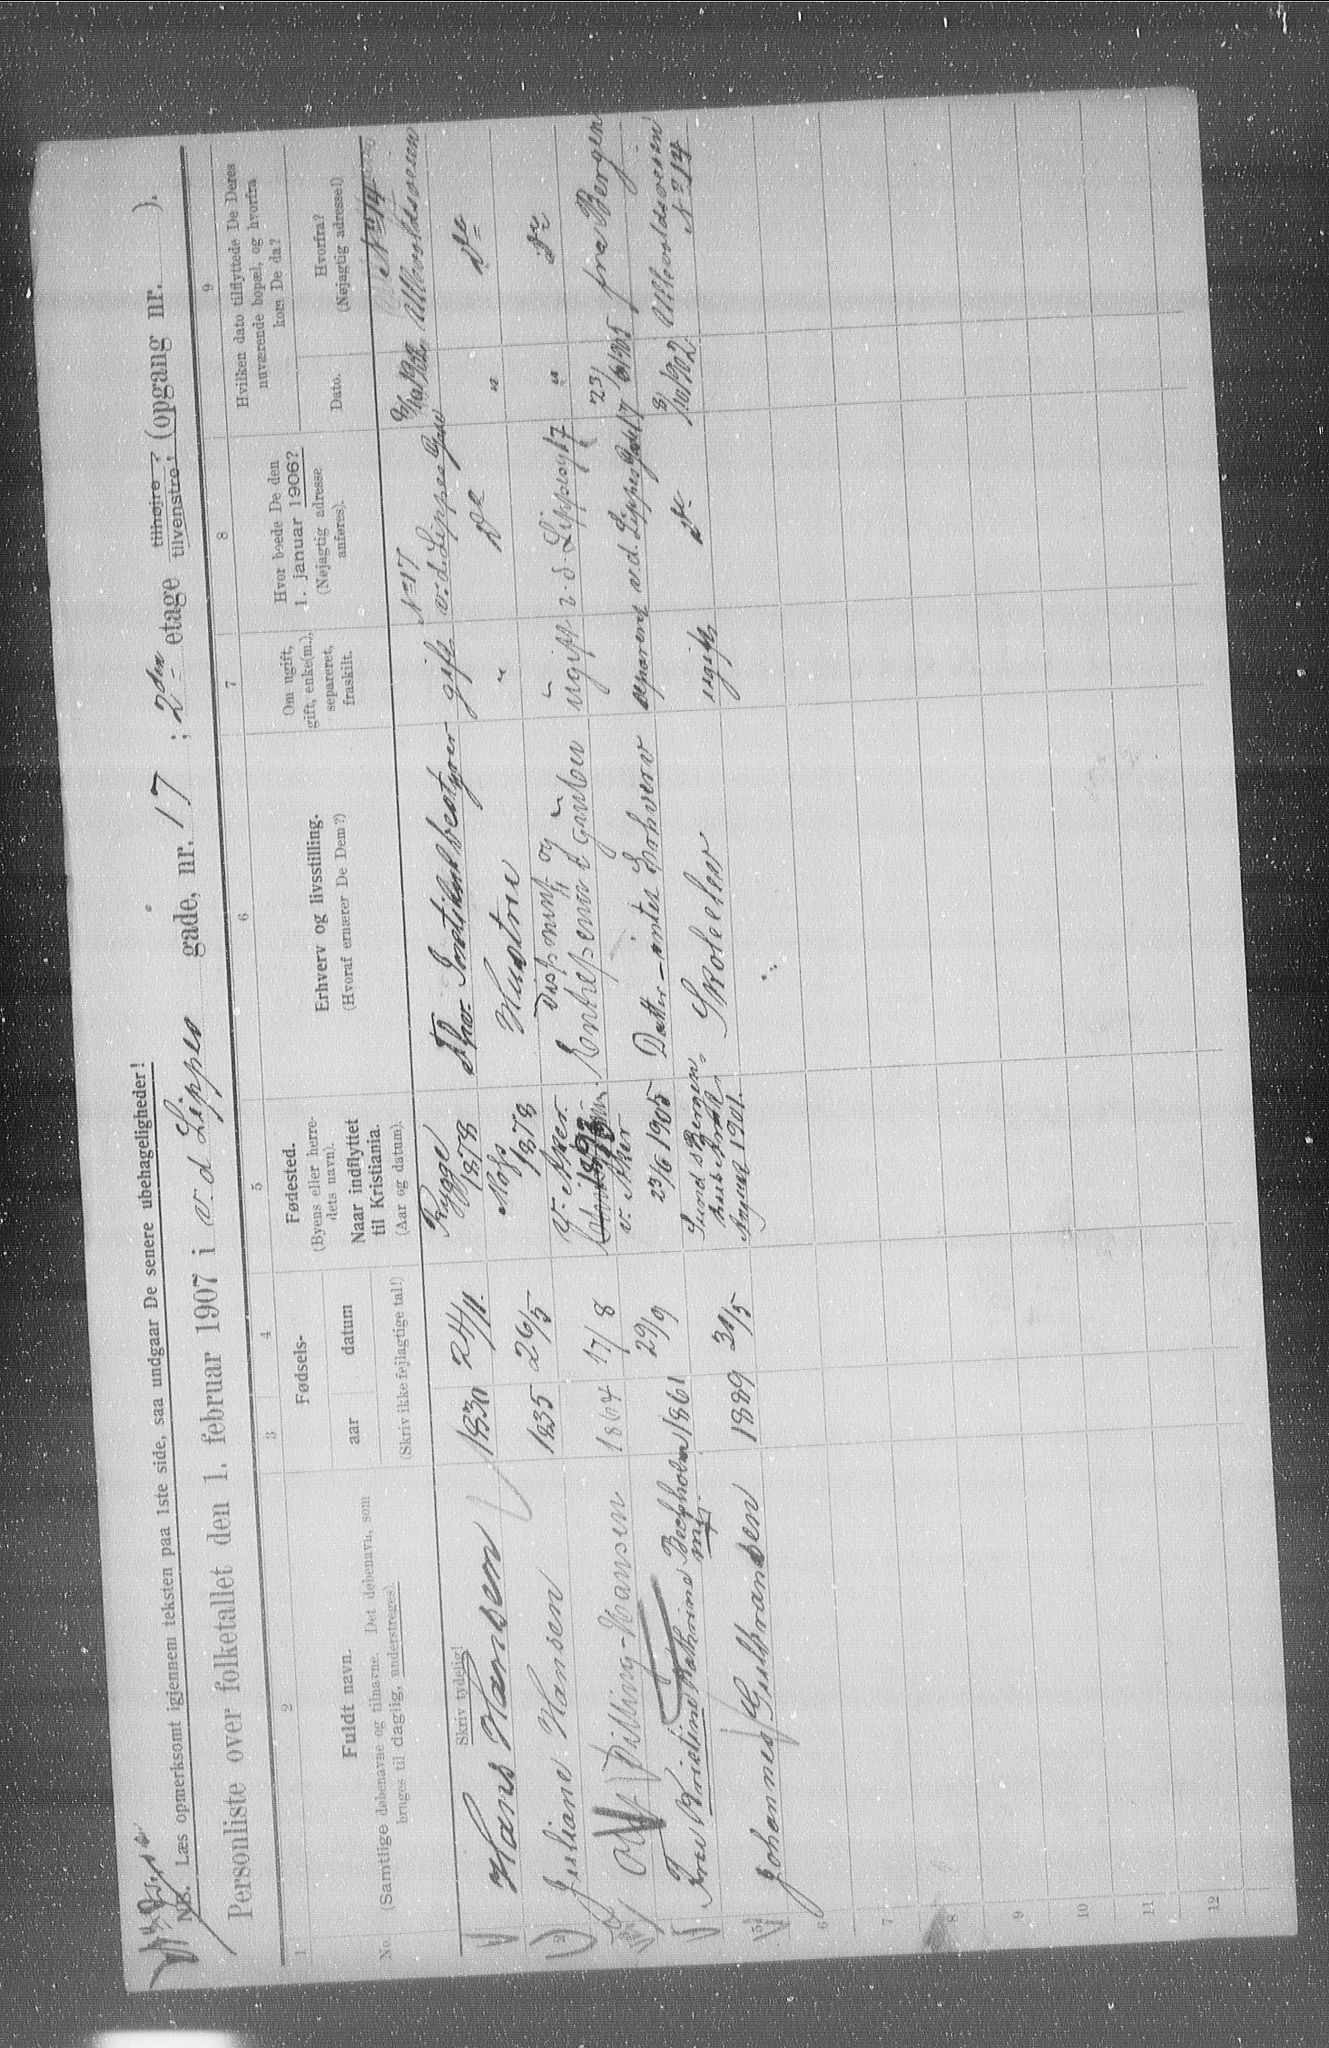 NB. Læs opmerksomt igjennem teksten paa 1ste side, saa undgaar De senere ubehageligheder!
Personliste over folketallet den 1. februar 1907 i v. d Lippes gade, nr. 17 ; 2den etage tilhøire ? tilvenstre ; (opgang nr. ).
1 2 3 4 5 6 7 8 9
No.
Fuldt navn.
(Samtlige døbenavne og tilnavne. Det døbenavn, som
bruges til daglig, understreges).
Fødsels-
aar datum
(Skriv ikke fejlagtige tal!)
Fødested.
(Byens eller herre-
dets navn).
Naar indflyttet
til Kristiania.
(Aar og datum).
Erhverv og livsstilling.
(Hvoraf ernærer De Dem?)
Om ugift,
gift, enke(m.),
separeret,
fraskilt.
Hvor boede De den
1. januar 1906?
(Nøjagtig adresse
anføres).
Hvilken dato tilflyttede De Deres
nuværende bopæl, og hvorfra
kom De da?
Dato.
Hvorfra?
(Nøjagtig adresse!)
Skriv tydelig!
Hans Hansen 1830 24/11. Rygge 1878 gift No 17 v. d. Lippes Gade No 14 Ullevoldsveien
2 Juliane Hansen 1835 26/5 Moss 1878 Hustru " Do " Do
Olaf Dilling-Hansen 1864 17/8 V. Aker Entreprenør ugift v. d. Lippesgt 17 " Do
Frue Kristine Kathrine Bechholm 1861 29/9 v. Aker 23/6 1905 Datter - intet Erhverv separeret v. d. Lippes Gade 17 23/6 1905 fra Bergen
5 Johannes Gulbrandsen 1889 31/5 1901. Skoleelev ugift Do Ullevoldsveien No 14
6
7
8
9
10
11
12